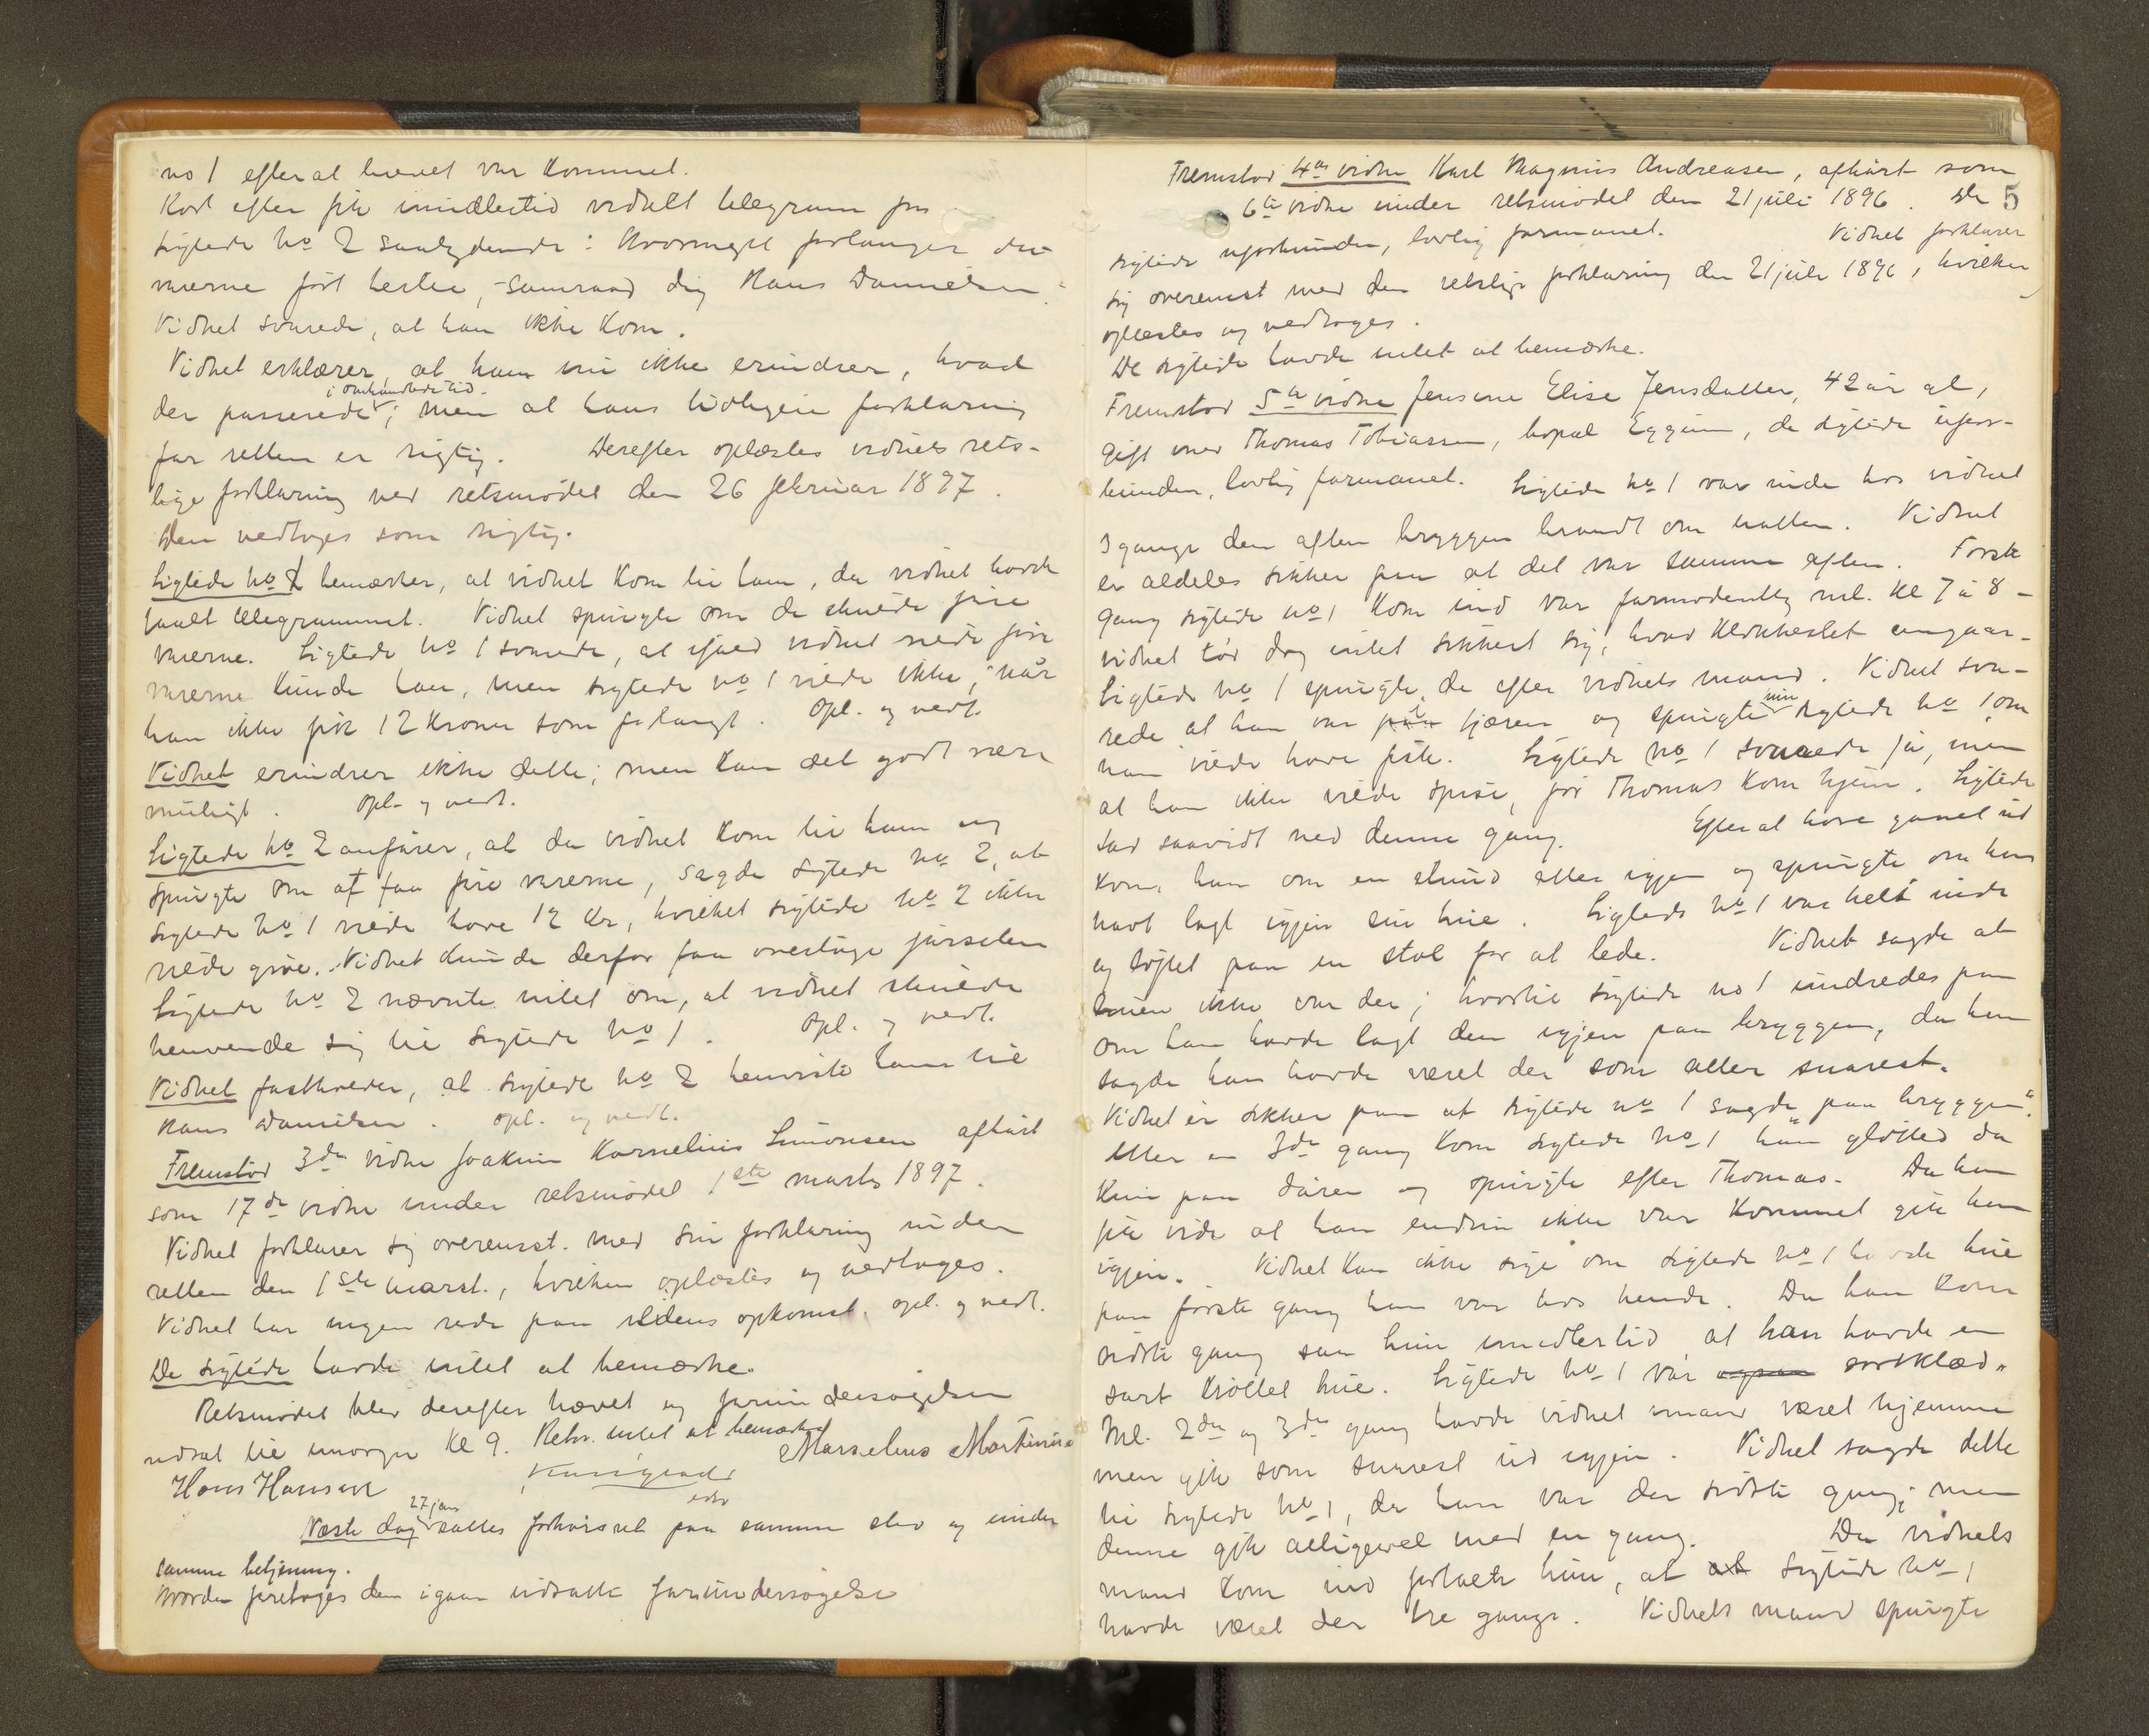 no 1 efter at brevet var kommet.
Kort efter fik imidlertid vidnet telegram fra
sigtede No 2 saalydende: Hvormeget forlanger du
varerne ført herte, samraad dig Hans Danielsen
Vidnet svarede, at han ikke kom.
Vidnet erklærer, at han nu ikke erindrer, hvad
i omhandlede tid.
der passerede; men at hans tidligere forklaring
for retten er rigtig. Derefter oplæstes vidnets rets-
lige forklaring ved retsmødet den 26 februar 1897.
Den vedtoges som rigtig.
Sigtede No 1 bemærker, at vidnet kom til ham, da vidnet havde
faaet telegrammet. Vidnet spurgte om de skulde føre
varerne. Sigtede No 1 svarede, at ifald vidnet vilde føre
varerne kunde han, men sigtede No 1 vilde ikke, når
han ikke fik 12 kroner som forlangt. Opl. og vedt.
Vidnet erindrer ikke dette; men kan det godt være
muligt. Opl. og vedt.
Sigtede No 2 anfører, at da vidnet kom til ham og
spurgte om at faa føre varerne, sagde sigtede No 2, at
sigtede No 1 vilde have 12 kr, hvilket sigtede No 2 ikke
vilde give. Vidnet kunde derfor faa overtage førselen
Sigtede No 2 nævnte intet om, at vidnet skulde
henvende sig til sigtede No 1. Opl. og vedt.
Vidnet fastholder, at sigtede No 2 henviste ham til
Hans Danielsen. Opl. og vedt.
Fremstod 3de vidne Joakim Kornelius Simonsen afhørt
som 17de vidne under retsmødet 1ste marts 1897.
Vidnet forklarer sig overensst. med sin forklaring inden
retten den 1ste marst., hvilken oplæstes og vedtoges.
Vidnet har ingen rede paa ildens opkomst. opl. og vedt.
De sigtede havde intet at bemærke.
Retsmødet blev derefter hævet og forundersøgelsen
udsat til imorgen kl 9. Retsv. intet at bemærke
Marselius Martinius
Hans Hansen
27 jan
Næste dag sattes forhørsret paa samme sted og under
samme betjening.
Hvorda foretoges den igaar udsatte forundersøgelse
5
Fremstod 4de vidne Karl Magnus Andreasen, afhørt som
6te vidne under retsmødet den 21 juli 1896. De
sigtede uforbunden, lovlig formanet. Vidnet forklarer
sig overenst med den retslige forklaring den 21 juli 1896, hvilken
oplæstes og vedtoges.
De sigtede havde intet at bemærke.
Fremstod 5te vidne Jensine Elise Jensdatter, 42 år gl,
gift med Thomas Tobiassen, bopæl Eggum, de sigtede ufor-
bunden, lovlig formanet. Sigtede No 1 var inde hos vidnet
3 gange den aften bryggen brændt om natten. Vidnet
er aldeles sikker paa at det var samme aften. Første
gang sigtede No 1 kom ind var formodentlig ml. kl 7 à 8 -
vidnet tør dog intet sikkert sig, hvad klokkeslet angaar.
Sigtede No 1 spurgte, da efter vidnets mand. Vidnet sva-
rede at han var i fjæren og spurgte min sigtede No 1, om
han vilde have fisk. Sigtede No 1 svarede ja, men
at han ikke vilde spise, før Thomas kom hjem. Sigtede
sad saavidt ned denne gang. Efter at have gaaet ud
kom han om en stund atter igjen og spurgte om han
havt lagt igjen sin hue. Sigtede No 1 var helt inde
og løftet paa en stol for at lede. Vidnet sagde at
huen ikke var der; hvortil sigtede no 1 undredes paa
om han havde lagt den igjen paa bryggen, da han
sagde han havde været der som aller snarest.
Vidnet er sikker paa at sigtede No 1 sagde "paa bryggen".
Atter en 3de gang kom sigtede No 1 han gløtted da
kun paa døren og spurgte efter Thomas. Da han
fik vide at han endnu ikke var kommet gik han
igjen. Vidnet kan ikke sige om sigtede No 1 havde hue
paa første gang han var hos hende. Da han kom
sidste gang saa hun imidlertid, at han havde en
sort krøllet hue. Sigtede No 1 var sortklæd.
Ml. 2den og 3de gang havde vidnet mand været hjemme
men gik som snarest ud igjen. Vidnet sagde dette
til sigtede No 1, da han var der sidste gang; men
denne gik alligevel med en gang. Da vidnets
mand kom ind fortalte hun, at sigtede No 1
havde været der tre gange. Vidnets mand spurgte